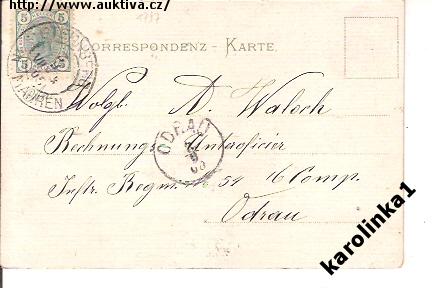 http://www.auktiva.cz/
1157
5 5
MÄHREN
CORRESPONDENZ - KARTE.
Wolgb. A. Waloch
ODRAU
Rechnungs Unterofficier
Inftr. Regm. No 54 16 Comp.
Odrau
karolinka1